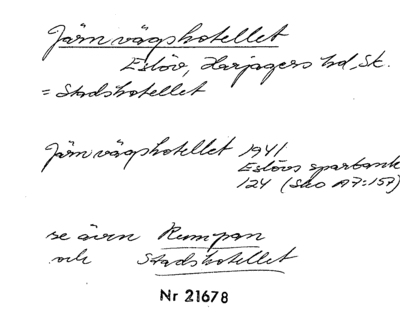 Järnvägshotellet
Eslöv, Harjagers hd, Sk.
= Stadshotellet
Järnvägshotellet 1941
Eslövs sparbank
124 (Sko A7:157)
se även Rumpan
och Stadshotellet
Nr 21678